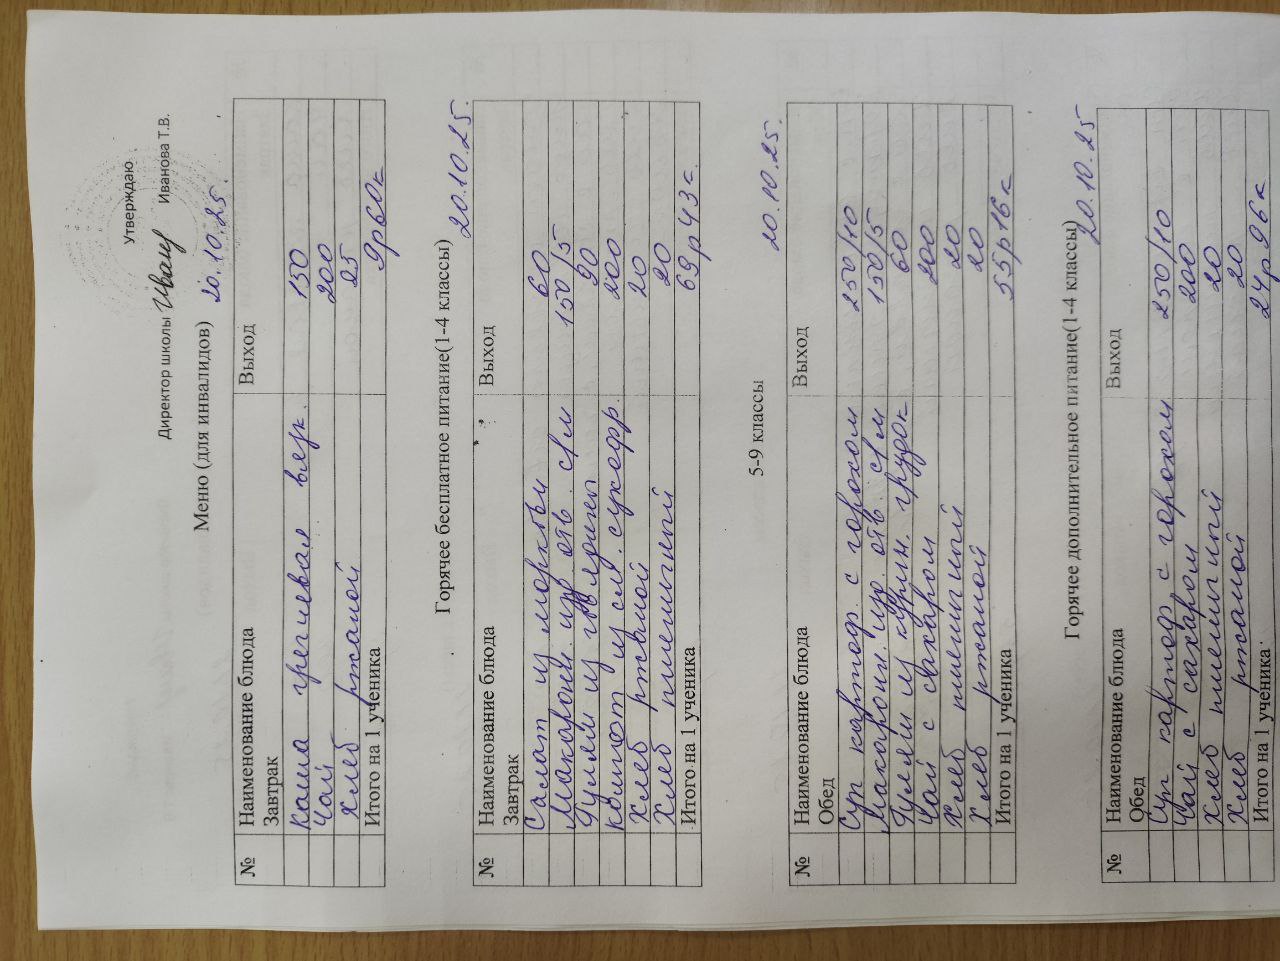 Утверждаю
Директор школы Иванова Т.В.
Меню (для инвалидов) 20.10.25.
№ Наименование блюда Выход
Завтрак
Каша гречневая вязк. 150
Чай 200
Хлеб ржаной 25
Итого на 1 ученика 9р60к
Горячее бесплатное питание(1-4 классы) 20.10.25.
№ Наименование блюда Выход
Завтрак
Салат из моркови 60
Макарон. изд отв. с/м 150/5
Гуляш из говядины 90
компот из см. сухофр. 200
Хлеб ржаной 20
Хлеб пшеничный 20
Итого на 1 ученика 69р43к
5-9 классы 20.10.25.
№ Наименование блюда Выход
Обед
Суп картоф. с горохом 250/10
Макарон. изд. отв. с/м 150/5
Гуляш из курин. грудок 60
Чай с сахаром 200
Хлеб пшеничный 20
Хлеб ржаной 20
Итого на 1 ученика 55р16к
Горячее дополнительное питание(1-4 классы) 20.10.25
№ Наименование блюда Выход
Обед
Суп картоф с горохом 250/10
Чай с сахаром 200
Хлеб пшеничный 20
Хлеб ржаной 20
Итого на 1 ученика 24р96к